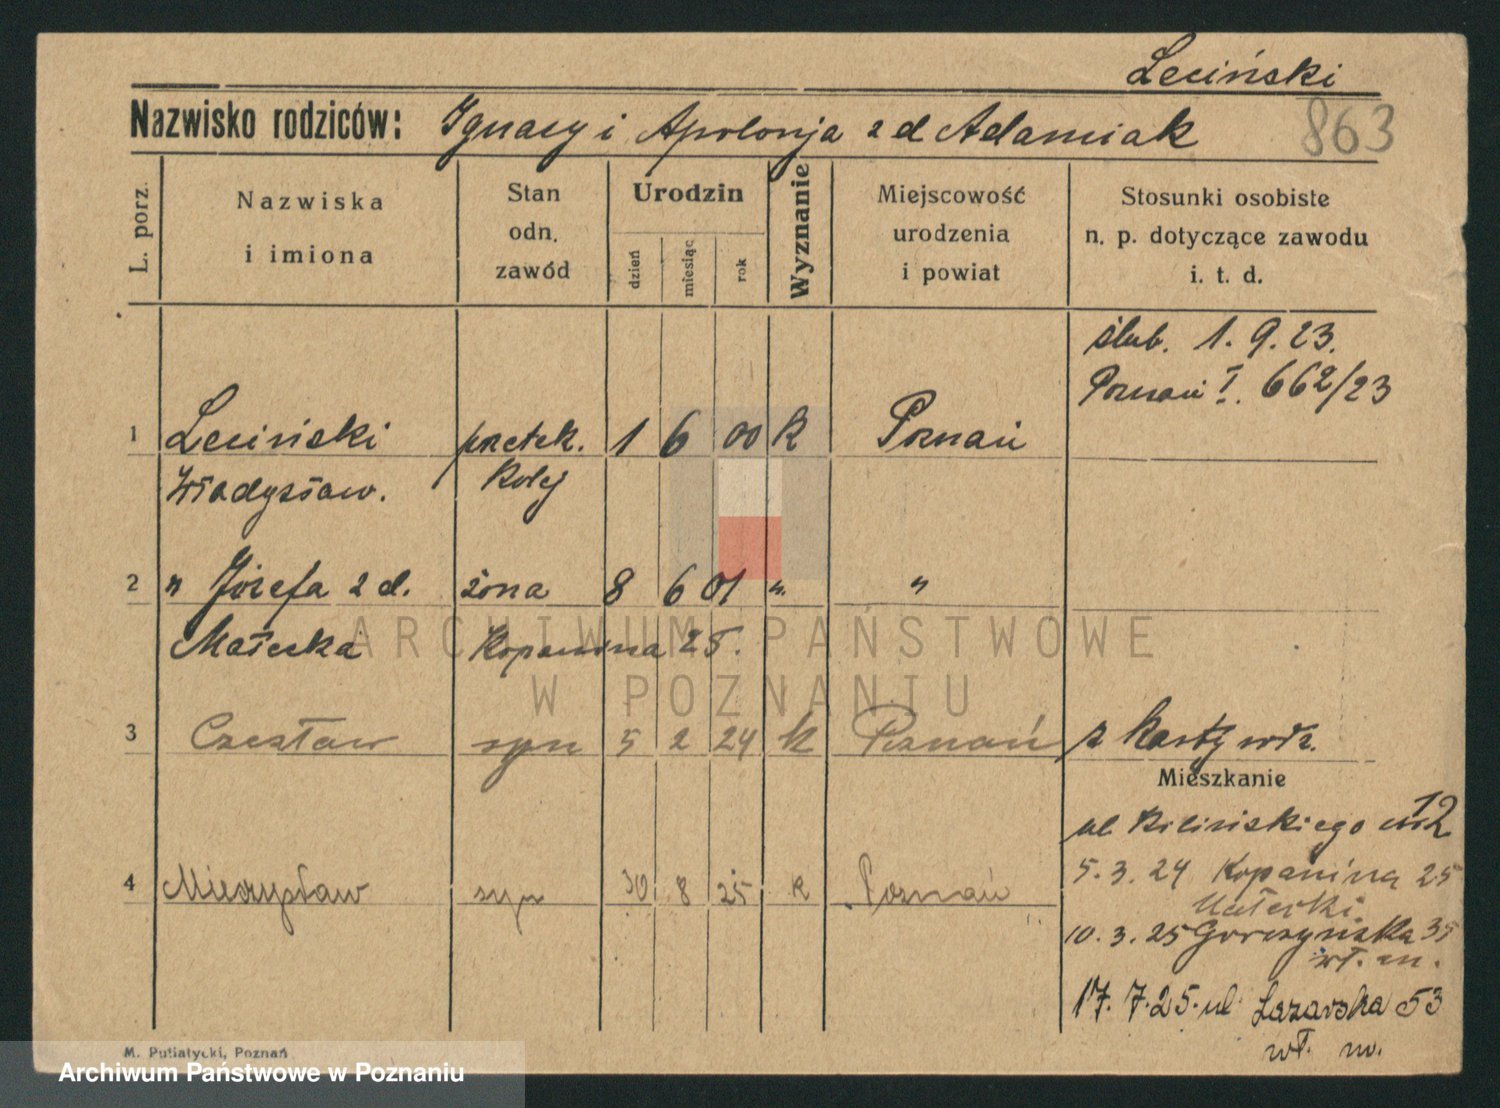 Leciński
Nazwisko rodziców: Ignacy i Apolonja z d Adamiak
863
L. porz.
Nazwiska
i imiona
Stan
odn.
zawód
Urodzin
dzień
miesiąc
rok
Wyznanie
Miejscowość
urodzenia
i powiat
Stosunki osobiste
n. p. dotyczące zawodu
i. t. d.
ślub. 1. 9. 23.
Poznań I. 662/23
1 Leciński pretek. 1 6 00 k Poznań
Władysław. kolej
2 " Józefa z d. żona 8 6 01 ". "
Małecka Kopanina 25.
3 Czesław syn 5 2 24 k Poznań z karty wł.
Mieszkanie
ul Kilińskiego 12
4 Mieczysław syn 30 8 25 k Poznań
5. 3. 24 Kopanina 25
Małecki
10. 3. 25 Gorczyńska 35
wł. m.
17. 7. 25. ul Łazarska 53
wł. m.
ARCHIWUM PAŃSTWOWE
W POZNANIU
M. Putiatycki, Poznań
Archiwum Państwowe w Poznaniu